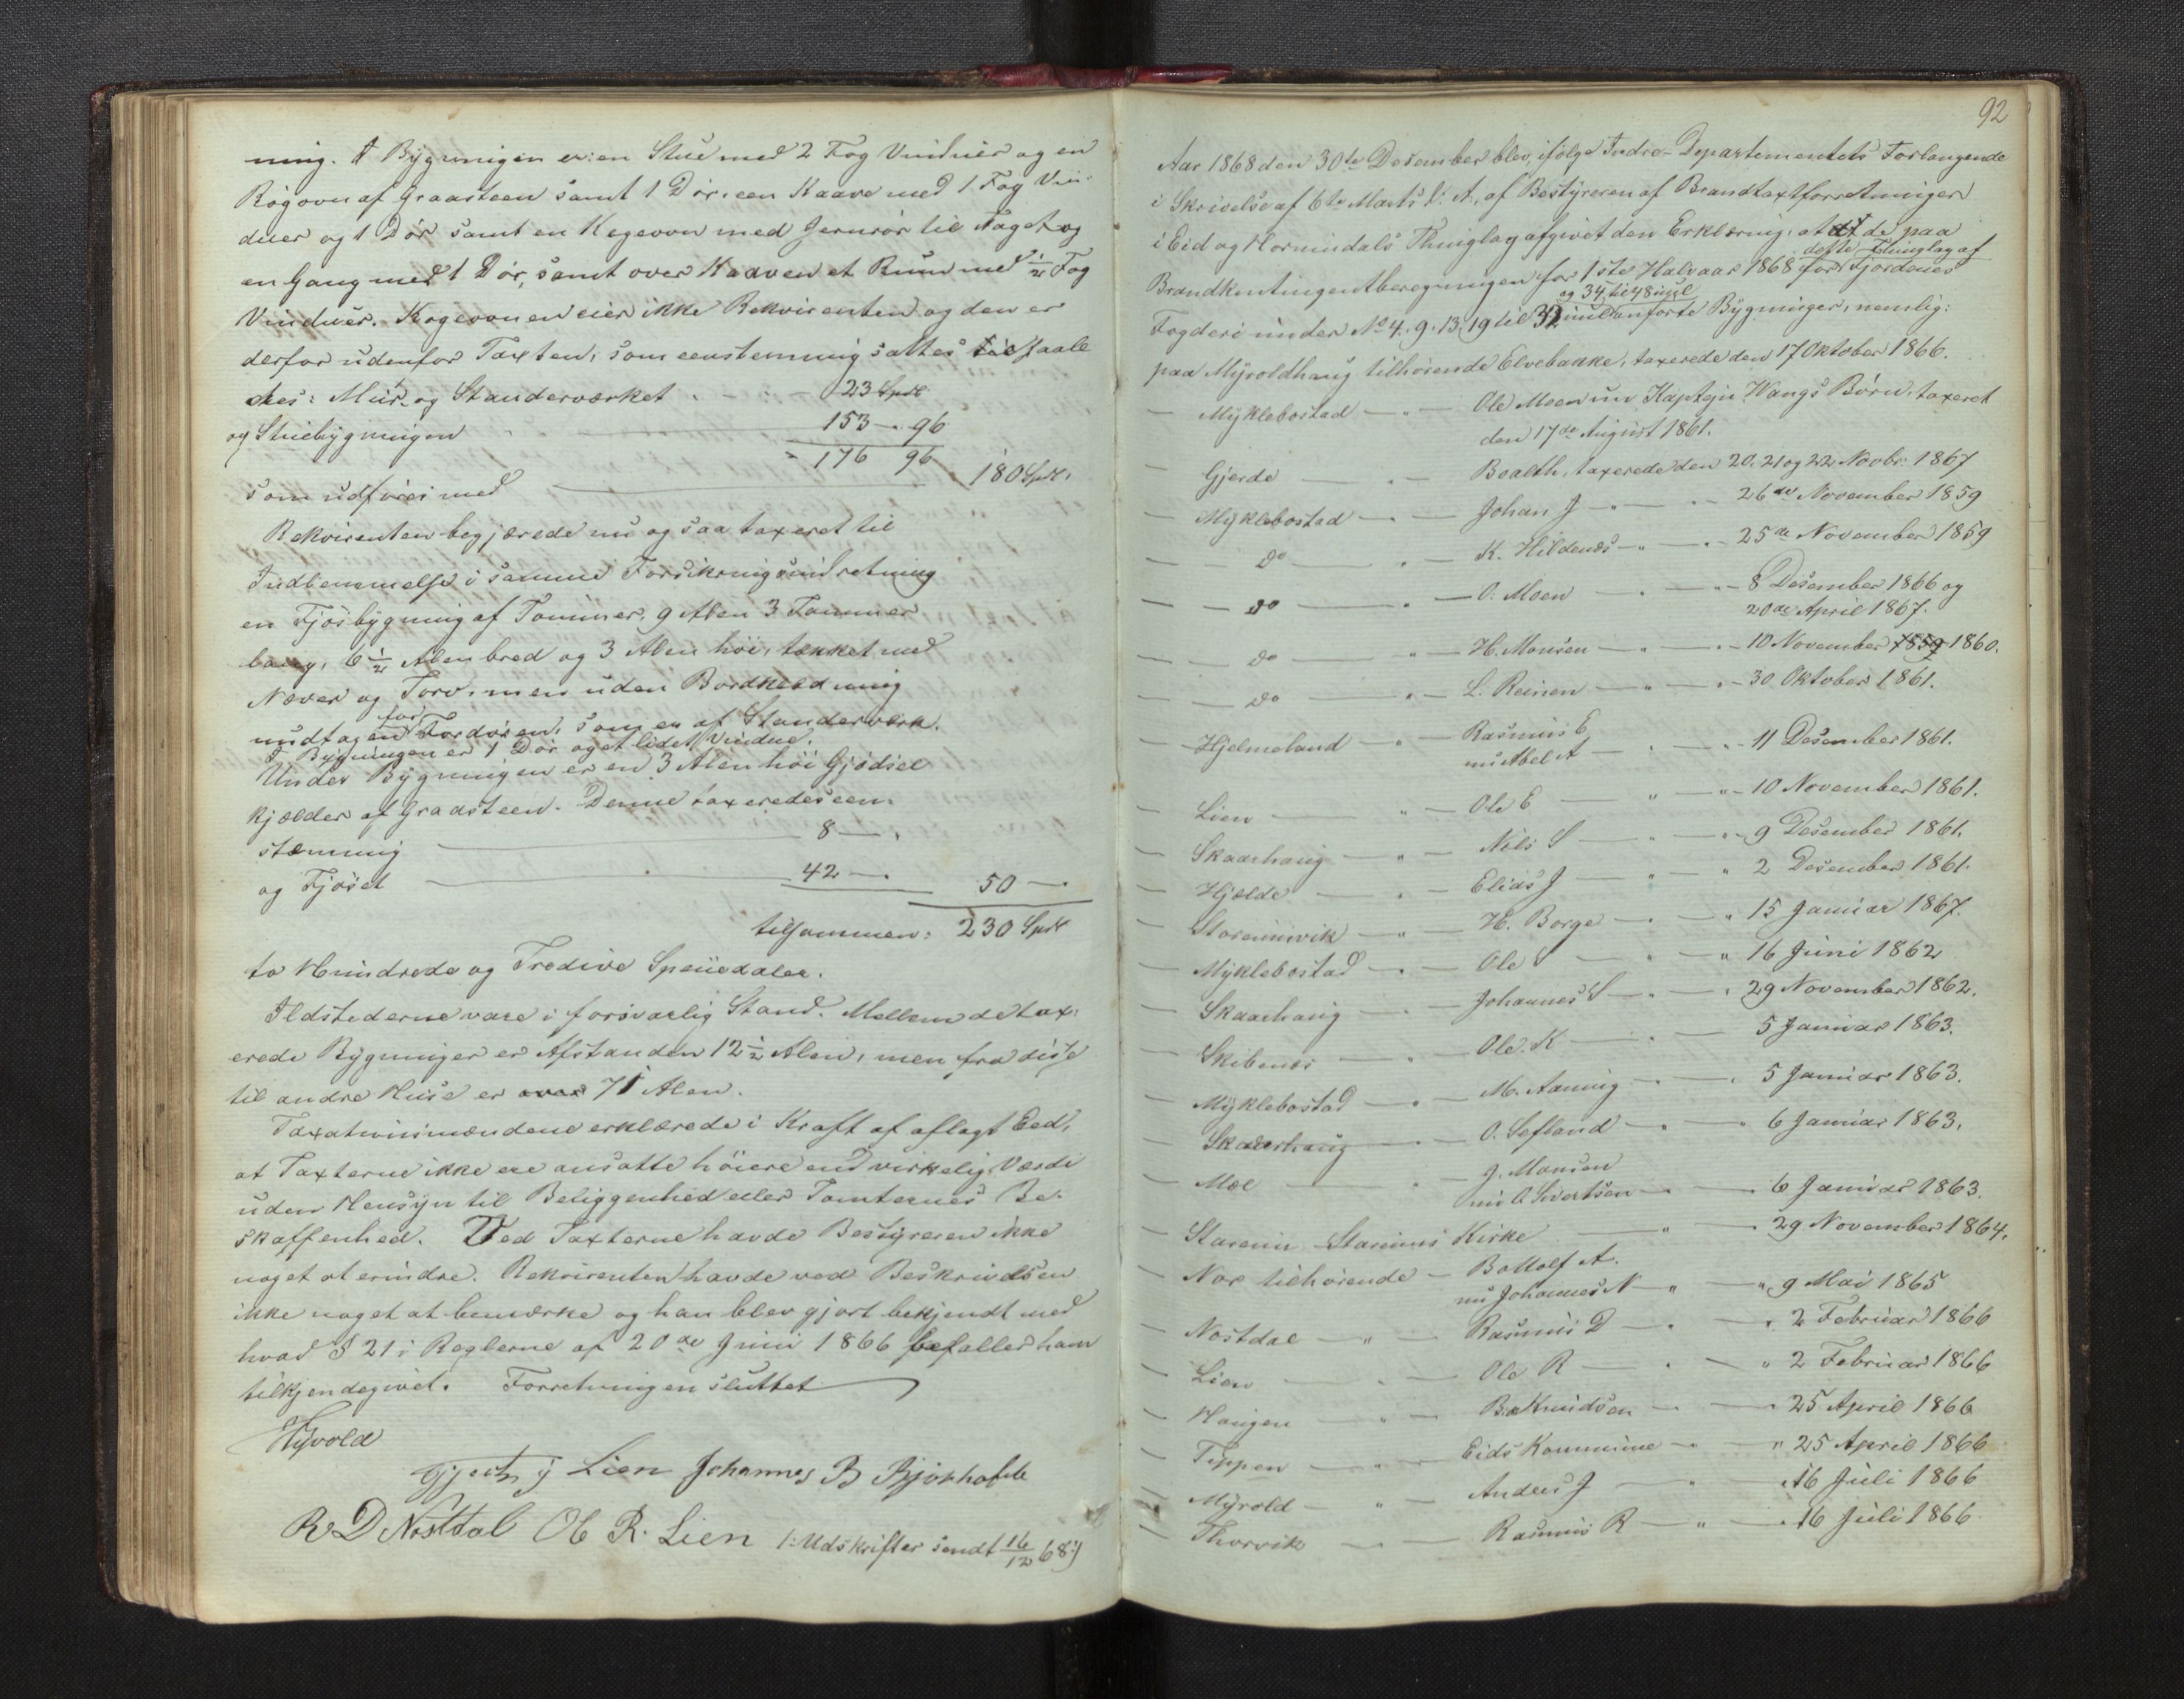 ning. I Bygningen er: en Stue med 2 Fag Vinduer og en
Rögovn af Graasteen samt 1 Dör, een Kaave med 1 Fag Vin-
duer og 1 Dör samt en Kogeovn med Jernrör til Taget og
en Gang med 1 Dör, samt over Kaaven et Rum med ½ Fag
Vinduer. Kogeovnen eier ikke Rekvirenten og den er
derfor udenfor Taxten, som eenstemmig sattes saale
des: Mur og Standerværket " 23 Spdl
og Stuebygningen " 153 - " 96
= 176 96
som udföres med 180 Spdl.
Rekvirenten begjærede nu ogsaa taxeret til
Indlemmelse i samme Forsikringsindretning
en Fjösbygning af Tömmer, 9 Alen 3 Tommer
lang, 6½ Alen bred og 3 Alen höi, tækket med
Næver og Torv, men uden Bordklædning
undtagen for Fordören, som er af Standerværk.
I Bygningen er 1 Dör og et lidet Vindue.
Under Bygningen er en 3 Alen höi Gjödsel
kjælder af Graasteen. Denne taxeredes een-
stemmig 8 - "
og Fjöset 42 - " 50 - "
tilsammen: 230 Spdl
to Hundrede og Tredive Speciedaler.
Ildstederne vare i forsvarlig Stand. Mellem de tax-
erede Bygninger er Afstanden 12½ Alen, men fra disse
til andre Huse er over 71 Alen.
Taxationsmændene erklærede i Kraft af aflagt Eed,
at Taxterne ikke ere ansatte höiere end virkelig Værdi
uden Hensyn til Beliggenhed eller Tomternes Be-
skaffenhed. Ved Taxterne havde Bestyreren ikke
noget at erindre. Rekvirenten havde ved Beskrivelsen
ikke noget at bemærke og han blev gjort bekjendt med
hvad § 21 i Reglerne af 20de Juni 1866 befaller ham
tilkjendegivet. Forretningen sluttet
Myvold
J Lien Johannes B
R D Nöstdal Ole R. Lien /: Udskrifter sendt 16/12 68 :/
92
Aar 1868 den 30te Desember blev, ifölge Indre-Departementets Forlangende
i Skrivelse af 6te Marts d: A:, af Bestyreren af Brandtaxtforretninger
i Eid og Hornindals Thinglag afgivet den Erklæring, at de paa
dette Thinglag af
Brandkontingentberegningen for 1ste Halvaar 1868 for Fjordenes
og 34 til 48 incl
Fogderi under No 4, 9, 13, 19 til 32 incl anförte Bygninger, nemlig:
paa Myroldhaug tilhörende Elvebakke, taxerede den 17 Oktober 1866.
— Myklebostad — " — Ole Moen nu Kaptejn Wangs Börn, taxeret
den 17de August 1861.
— Gjerde — " — Boalth, taxerede den 20, 21 og 22 Novbr: 1867
— Myklebostad — " — Johan J — " — " — 26de November 1859
— do — " — K. Hildenes — " — " — 25de November 1859
— do — " — O. Moen — " — " — 8 Desember 1866 og
20de April 1867.
— do — " — H. Monsen — " — " — 10 November 1859 1860.
— do — " — L. Reinen — " — " — 30 Oktober 1861.
— Hjelmeland — " — Rasmus E
nu Abel A — " — " — 11 Desember 1861.
— Lien — " — Ole E — " — " — 10 November 1861.
— Skaarhaug — " — Nils S — " — " — 9 Desember 1861.
— Hjelde — " — Elias J — " — " 2 Desember 1861.
— Stareimvik — " — H. Borge — " — " 15 Januar 1867.
— Myklebostad — " — Ole — " — " 16 Juni 1862
— Skaarhaug — " — Johannes S — " — " 29 November 1862.
— Skibenes — " — Ole K — " — 5 Januar 1863.
— Myklebostad — " — M. Aaning — " — " 5 Januar 1863.
— Skaarhaug — " — O. Sefland — " — " 6 Januar 1863.
— Moe — " — J. Monsen
nu A Sivertsen — " — 6 Januar 1863.
— Stareim Stareims Kirke — " — 29 November 1864.
— Nor tilhörende — Bottolf A.
nu Johannes N — " — " 9 Mai 1865
— Nöstdal — " — Rasmus D — " — " 2 Februar 1866
— Lien — " — Ole R — " — " 2 Februar 1866
— Haugen — " — Knudsen — " — " 25 April 1866
— Tippen — " — Eids Kommune — " — " 25 April 1866
— Myrold — " — Anders J — " — 16 Juli 1866
— Thorvik — " — Rasmus R — " — " 16 Juli 1866.